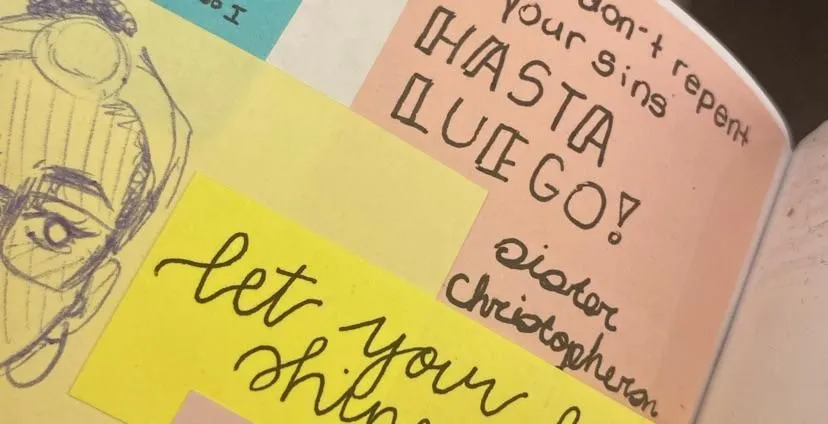 don't repent
your sins
HASTA
LUEGO!
sister
christopherson
let your